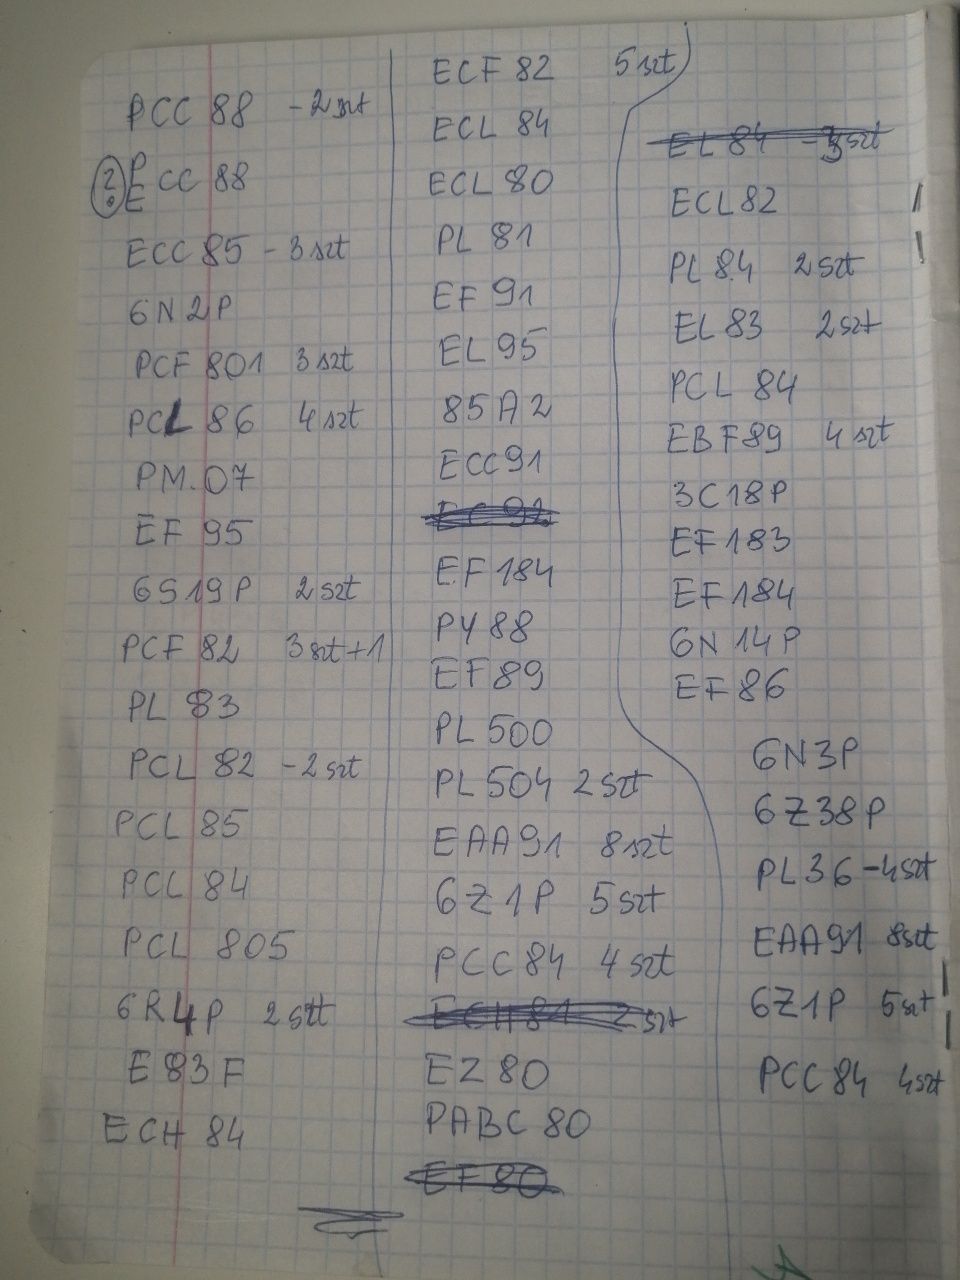 PCC 88 - 2 szt
? P/E CC 88
ECC 85 - 3 szt
6N2P
PCF 801 3 szt
PCL 86 4 szt
PM.07
EF 95
6S19P 2 szt
PCF 82 3 szt + 1
PL 83
PCL 82 - 2 szt
PCL 85
PCL 84
PCL 805
6R4P 2 szt
E83F
ECH 84
ECF 82 5 szt
ECL 84
ECL 80
PL 81
EF 91
EL 95
85A2
ECC91
EC 92
EF 184
PY 88
EF 89
PL 500
PL 504 2 szt
EAA91 8 szt
6Z1P 5 szt
PCC 84 4 szt
ECH 81 2 szt
EZ 80
PABC 80
EF 80
EL 84 - szt
ECL82
PL 84 2 szt
EL 83 2 szt
PCL 84
EBF89 4 szt
3C18P
EF183
EF184
6N14P
EF 86
6N3P
6Z38P
PL36 - 4 szt
EAA91 8 szt
6Z1P 5 szt
PCC 84 4 szt